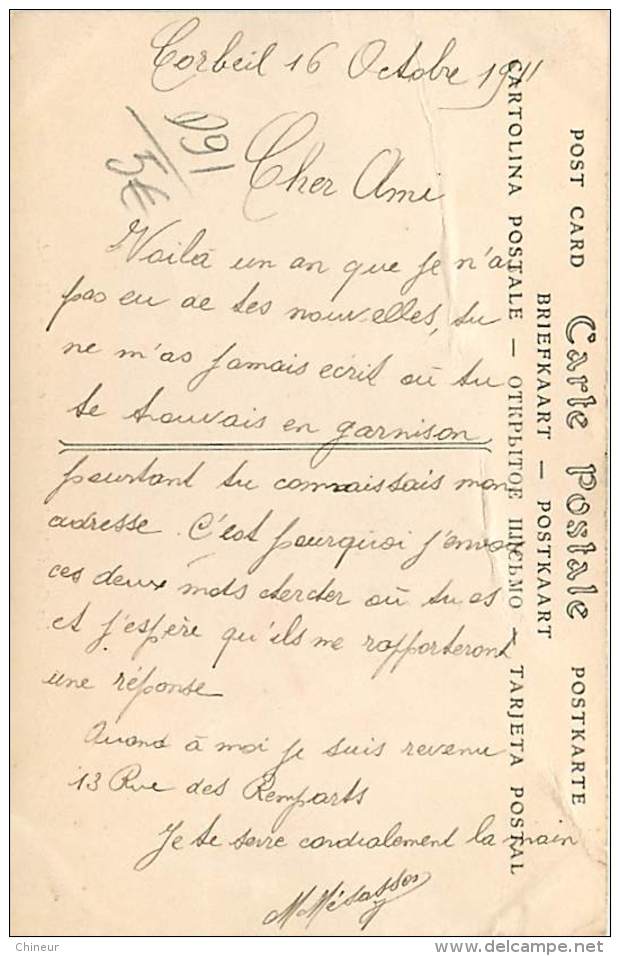 Corbeil 16 Octobre 1911
D91
5€
Cher Ami
Voilà un an que je n'ai
pas eu de tes nouvelles, tu
ne m'as jamais ecrit où tu
te trouvais en garnison
pourtant tu connaissais mon
adresse. C'est pourquoi j'envoi
ces deux mots chercher où tu es
et j'espère qu'ils me rapporteront
une réponse
Quand à moi je suis revenu
13 Rue des Remparts
Je te serre cordialement la main
POST CARD Carte Postale POSTKARTE
BRIEFKAART — POSTKAART
CARTOLINA POSTALE — ОТКРЫТОЕ ПИСЬМО — TARJETA POSTAL
Chineur
www.delcampe.net